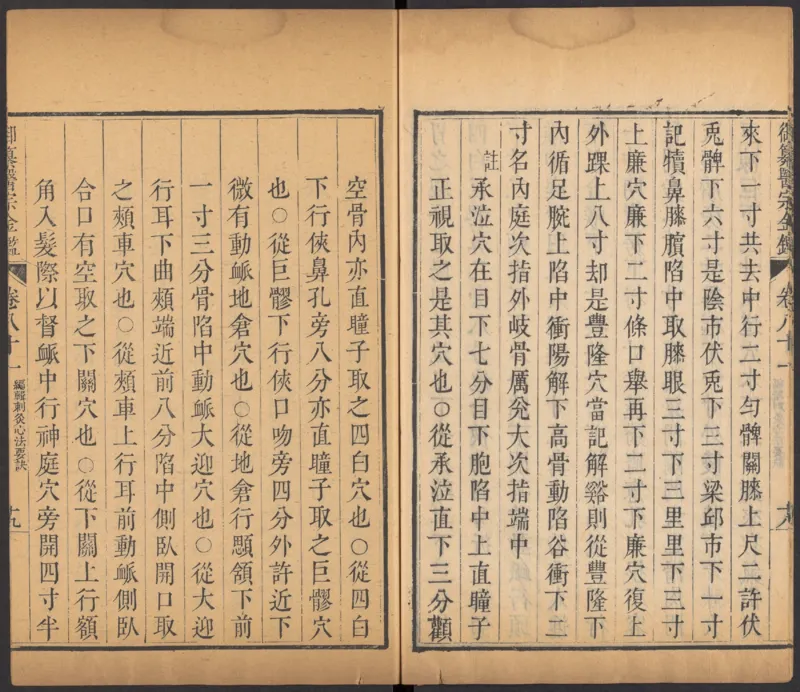 御纂醫宗金鑑 卷八十一 十八
來下一寸共去中行二寸勻髀關膝上尺二許伏
兎髀下六寸是陰市伏兎下三寸梁邱市下一寸
記犢鼻膝臏陷中取膝眼三寸下三里里下三寸
上廉穴廉下二寸條口舉再下二寸下廉穴復上
外踝上八寸却是豐隆穴當記解谿則從豐隆下
內循足腕上陷中衝陽解下高骨動陷谷衝下二
寸名內庭次指外岐骨厲兊大次指端中
註承泣穴在目下七分目下胞陷中上直瞳子
正視取之是其穴也○從承泣直下三分顴
空骨內亦直瞳子取之四白穴也○從四白
下行俠鼻孔旁八分亦直瞳子取之巨髎穴
也○從巨髎下行俠口吻旁四分外許近下
微有動衇地倉穴也○從地倉行顋頷下前
一寸三分骨陷中動衇大迎穴也○從大迎
行耳下曲頰端近前八分陷中側臥開口取
之頰車穴也○從頰車上行耳前動衇側臥
合口有空取之下關穴也○從下關上行額
角入髮際以督衇中行神庭穴旁開四寸半
御纂醫宗金鑑 卷八十一 編輯刺灸心法要訣 十九